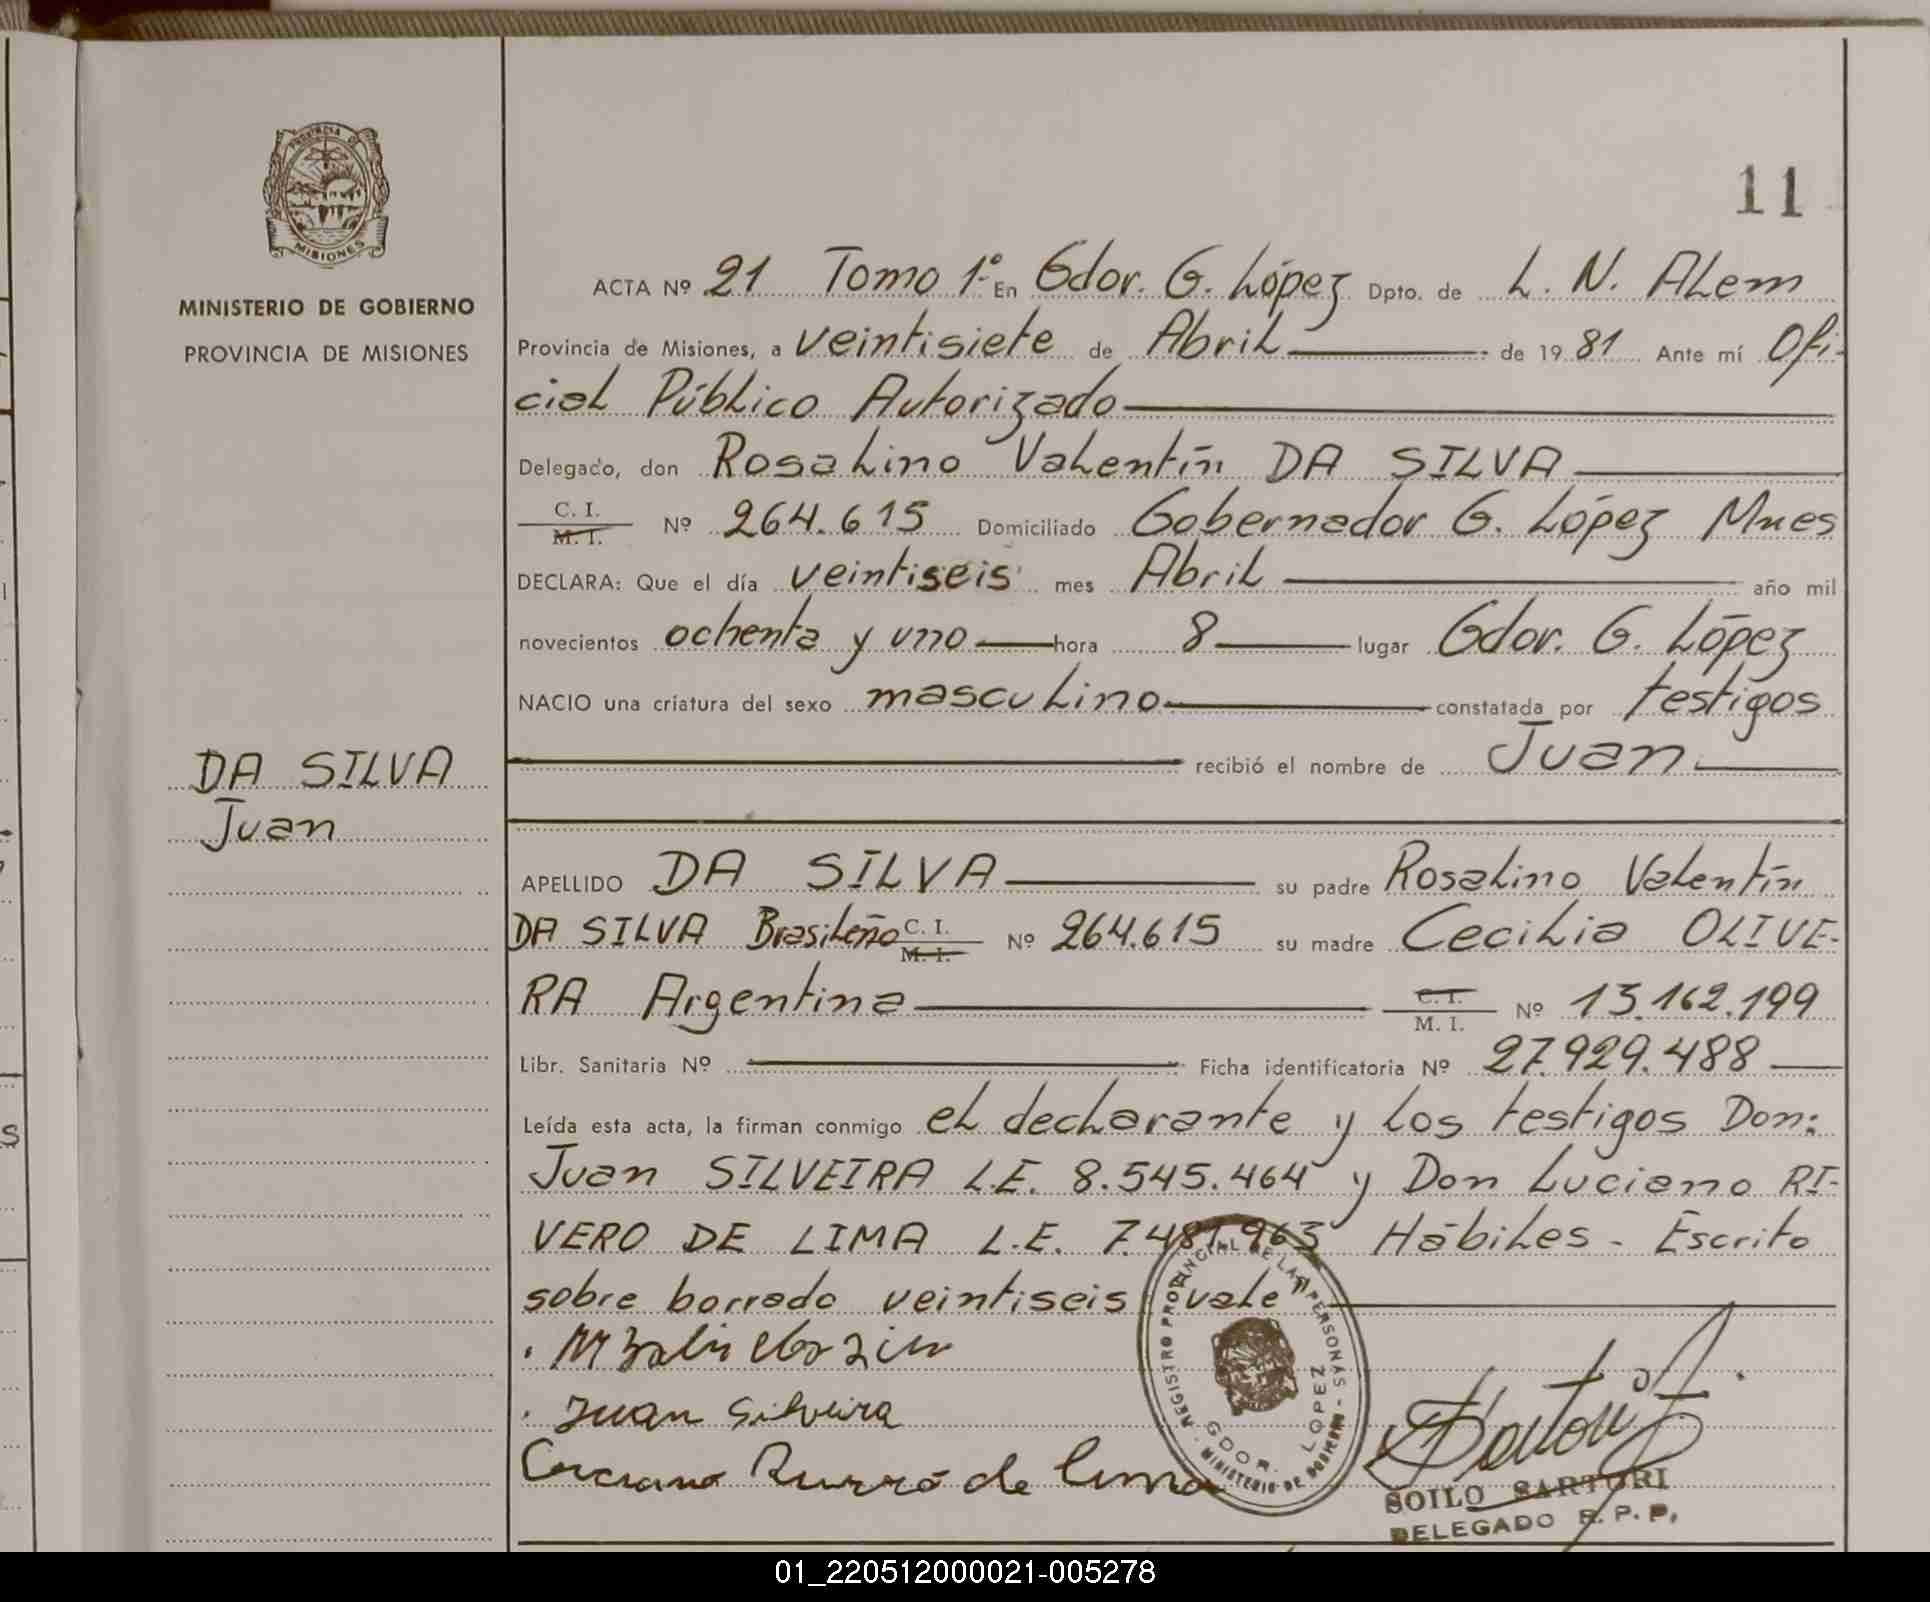 PROVINCIA DE
MISIONES
MINISTERIO DE GOBIERNO
PROVINCIA DE MISIONES
DA SILVA
Juan
11
ACTA Nº 21 Tomo 1º En Gdor. G. López Dpto. de L. N. ALem
Provincia de Misiones, a veintisiete de Abril de 1981 Ante mí Ofi-
cial Público Autorizado
Delegado, don Rosalino Valentín DA SILVA
C. I.
M. I. Nº 264.615 Domiciliado Gobernador G. López Mnes
DECLARA: Que el día veintiseis mes Abril año mil
novecientos ochenta y uno hora 8 lugar Gdor. G. López
NACIO una criatura del sexo masculino constatada por testigos
recibió el nombre de Juan
APELLIDO DA SILVA su padre Rosalino Valentín
DA SILVA Brasileño C. I. M. I. Nº 264.615 su madre Cecilia OLIVE-
RA Argentina C. I. M. I. Nº 13.162.199
Libr. Sanitaria Nº Ficha identificatoria Nº 27.929.488
Leída esta acta, la firman conmigo el declarante y los testigos Don:
Juan SILVEIRA L.E. 8.545.464 y Don Luciano RI-
VERO DE LIMA L.E. 7.481.963 Hábiles - Escrito
sobre borrado veintiseis "vale"
Juan Silveira
de Lima
REGISTRO PROVINCIAL DE LAS PERSONAS - MINISTERIO DE GOBIERNO -
GDOR. LOPEZ
SOILO SARTORI
DELEGADO R. P. P.
01_220512000021-005278